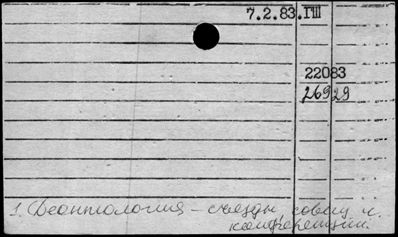 7.2.83.
22083
26929
1. Деонтология – съезды, совещ. и
конференции.